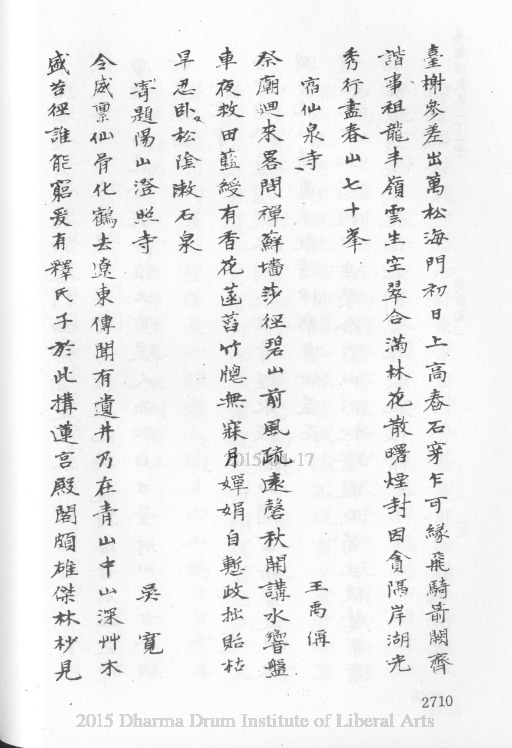 臺榭參差出萬松海門初日上高舂石穿乍可緣飛騎莭闕齊
諧事祖龍半嶺雲生空翠合滿林花散曙煙封因貪隔岸湖光
秀行盡春山七十峯
宿仙泉寺
王禹偁
祭廟迴來畧問禪蘚墻莎徑碧山前風疏遠磬秋開講水響盤
車夜救田藍綬有香花菡萏竹牕無寐月嬋娟自慙政拙貽枯
旱忍臥松陰漱石泉
寄題陽山澄照寺
吳寬
令威稟仙骨化鶴去遼東傳聞有遺井乃在青山中山深艸木
盛苔徑誰能窮爰有釋氏子於此搆蓮宮殿閣頗雄傑林杪見
2015-04-17
2710
2015 Dharma Drum Institute of Liberal Arts